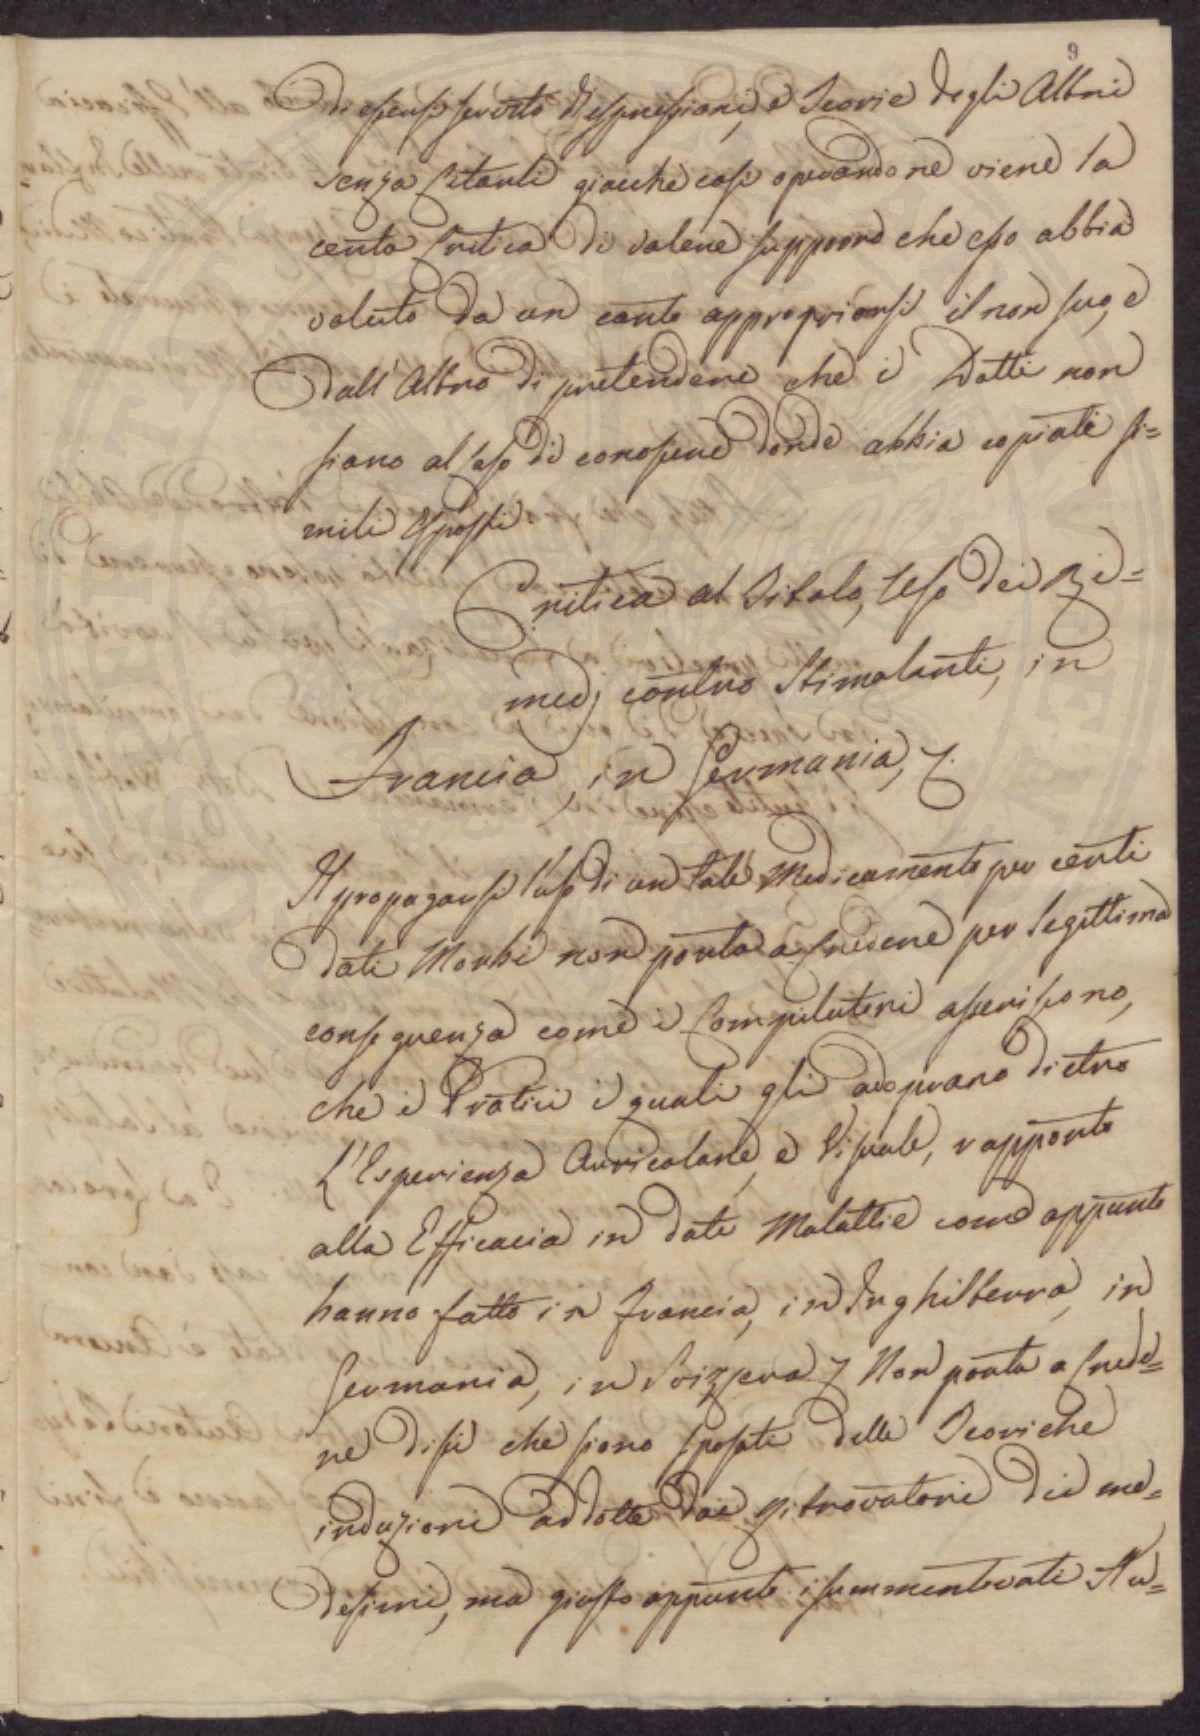 9
di essersi servito d'espressioni, e Teorie degli Altri
senza Citarli giacche così operando ne viene la
certa Critica di volere supporre che esso abbia
voluto da un canto appropriarsi il non suo, e
dall'Altro di pretendere che i Dotti non
siano al Caso di conoscere donde abbia copiati si=
mili Esposti
Critica al Titolo, Uso dei Ri=
medj contro Stimolanti, in
Francia, in Germania,
Il propagarsi l'uso di un tale Medicamento per certi
dati Morbi non porta a Credere per legittima
conseguenza come i Compilatori asseriscono,
che i Pratici i quali gli adoprano dietro
L'Esperienza Auricolare, e Visuale, rapporto
alla Efficacia in date Malattie come appunto
hanno fatto in Francia, in Inghilterra, in
Germania, in Svizzera Non porta a Crede=
re dissi che siano sposate delle Teoriche
induzioni addotte dai Ritrovatori dei me=
desimi, ma giusto appunto i summentovati Au=